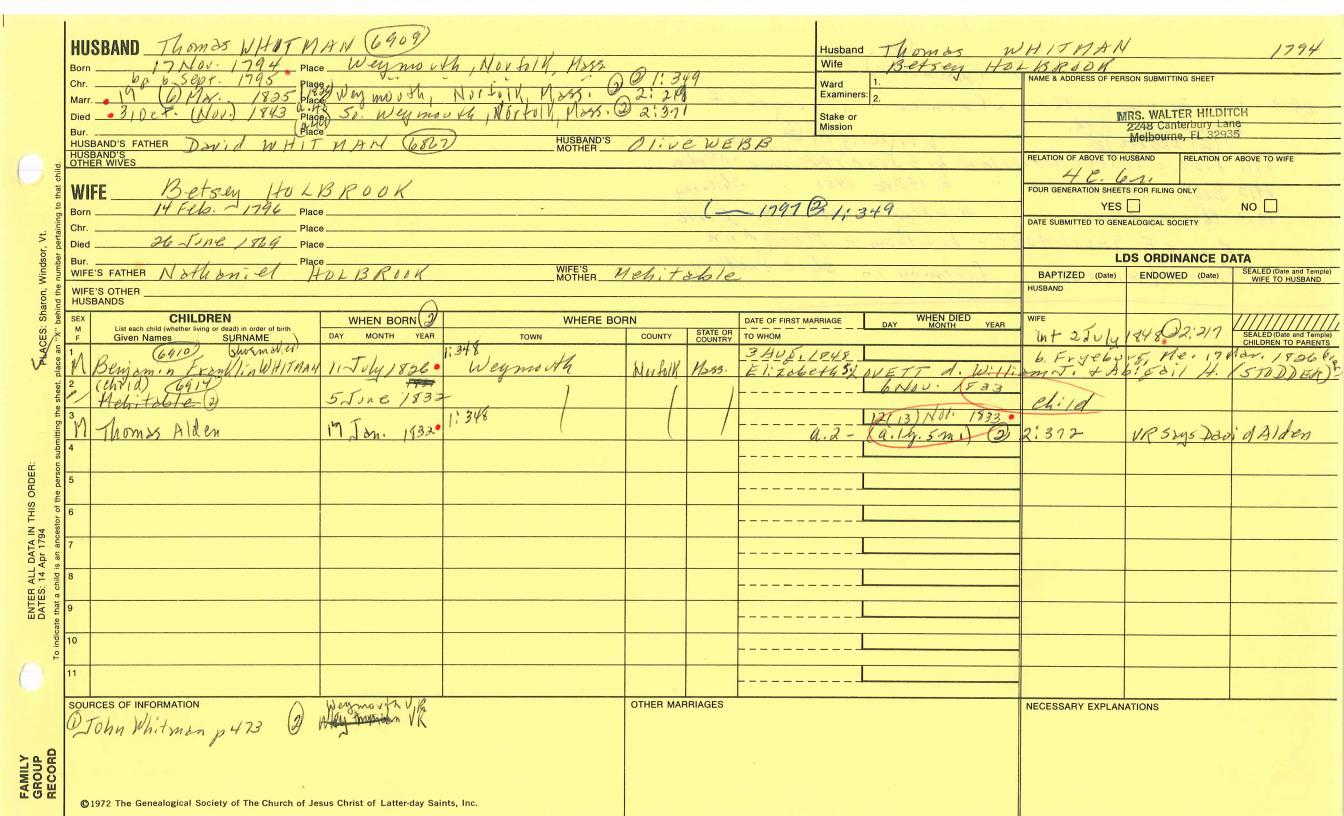 HUSBAND Thomas WHITMAN (6909)
Born 17 Nov. 1794 Place Weymouth, Norfolk, Mass
Chr. bp 6 Sept. 1795 Place ② 1:349
Marr. 19 (6) Mar. 1825 Place Weymouth, Norfolk, Mass. ② 2:218
Died 3, Oct. (Nov.) 1843 Place So. Weymouth, Norfolk, Mass. ② 2:371
Bur. Place
HUSBAND'S FATHER David WHITMAN (6867) HUSBAND'S MOTHER Olive WEBB
HUSBAND'S OTHER WIVES
WIFE Betsey HOLBROOK
Born 14 Feb. 1796 Place ( 1797 ② 1:349
Chr. Place
Died 26 June 1869 Place
Bur. Place
WIFE'S FATHER Nathaniel HOLBROOK WIFE'S MOTHER Mehitable
WIFE'S OTHER HUSBANDS
Husband Thomas WHITMAN 1794
Wife Betsey HOLBROOK
Ward Examiners: 1. 2.
Stake or Mission
NAME & ADDRESS OF PERSON SUBMITTING SHEET
MRS. WALTER HILDITCH
2248 Canterbury Lane
Melbourne, FL 32935
RELATION OF ABOVE TO HUSBAND RELATION OF ABOVE TO WIFE
4C. 6r.
FOUR GENERATION SHEETS FOR FILING ONLY
YES NO
DATE SUBMITTED TO GENEALOGICAL SOCIETY
LDS ORDINANCE DATA
BAPTIZED (Date) ENDOWED (Date) SEALED (Date and Temple) WIFE TO HUSBAND
HUSBAND
WIFE
SEALED (Date and Temple) CHILDREN TO PARENTS
SEX M F CHILDREN WHEN BORN ② WHERE BORN DATE OF FIRST MARRIAGE WHEN DIED
List each child (whether living or dead) in order of birth
Given Names SURNAME DAY MONTH YEAR TOWN COUNTY STATE OR COUNTRY TO WHOM DAY MONTH YEAR
int 2 July 1848 ② 2:217
1 (6910) (shoemaker) 1:348 3 Aug. 1848 b. Fryeburg, Me. 17 Mar. 1826
M Benjamin Franklin WHITMAN 11 July 1826 Weymouth Norfolk Mass. Elizabeth S. LOVETT d. William J. & Abigail H. (STODDER)
2 (child) (6914) 6 Nov. 1833
Mehitable ② 5 June 1832 child
3 1:348 12 (13) Nov. 1833
M Thomas Alden 17 Jan. 1832 a.2 - (a.1y.5m.) ② 2:372 VR says David Alden
4
5
6
7
8
9
10
11
SOURCES OF INFORMATION OTHER MARRIAGES NECESSARY EXPLANATIONS
① John Whitman p473 ② Weymouth VR
VR
©1972 The Genealogical Society of The Church of Jesus Christ of Latter-day Saints, Inc.
FAMILY GROUP RECORD
ENTER ALL DATA IN THIS ORDER:
DATES: 14 Apr 1794
PLACES: Sharon, Windsor, Vt.
To indicate that a child is an ancestor of the person submitting the sheet, place an "X" behind the number pertaining to that child.